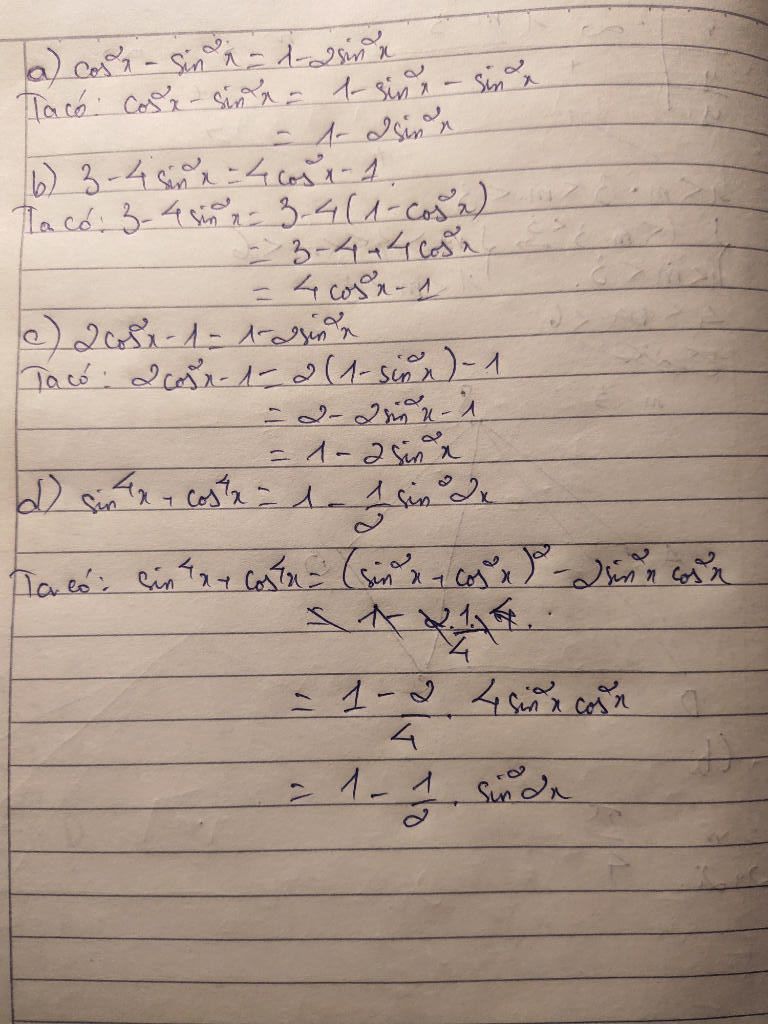 a) cos²x - sin²x = 1 - 2sin²x
Ta có: cos²x - sin²x = 1 - sin²x - sin²x
= 1 - 2sin²x
b) 3 - 4sin²x = 4cos²x - 1.
Ta có: 3 - 4sin²x = 3 - 4(1 - cos²x)
= 3 - 4 + 4cos²x
= 4cos²x - 1
c) 2cos²x - 1 = 1 - 2sin²x
Ta có: 2cos²x - 1 = 2(1 - sin²x) - 1
= 2 - 2sin²x - 1
= 1 - 2sin²x
d) sin⁴x + cos⁴x = 1 - 1/2 sin²2x
Ta có: sin⁴x + cos⁴x = (sin²x + cos²x)² - 2sin²x cos²x
= 1 - 2.1/4.4.
= 1 - 2/4 . 4sin²x cos²x
= 1 - 1/2 . sin²2x